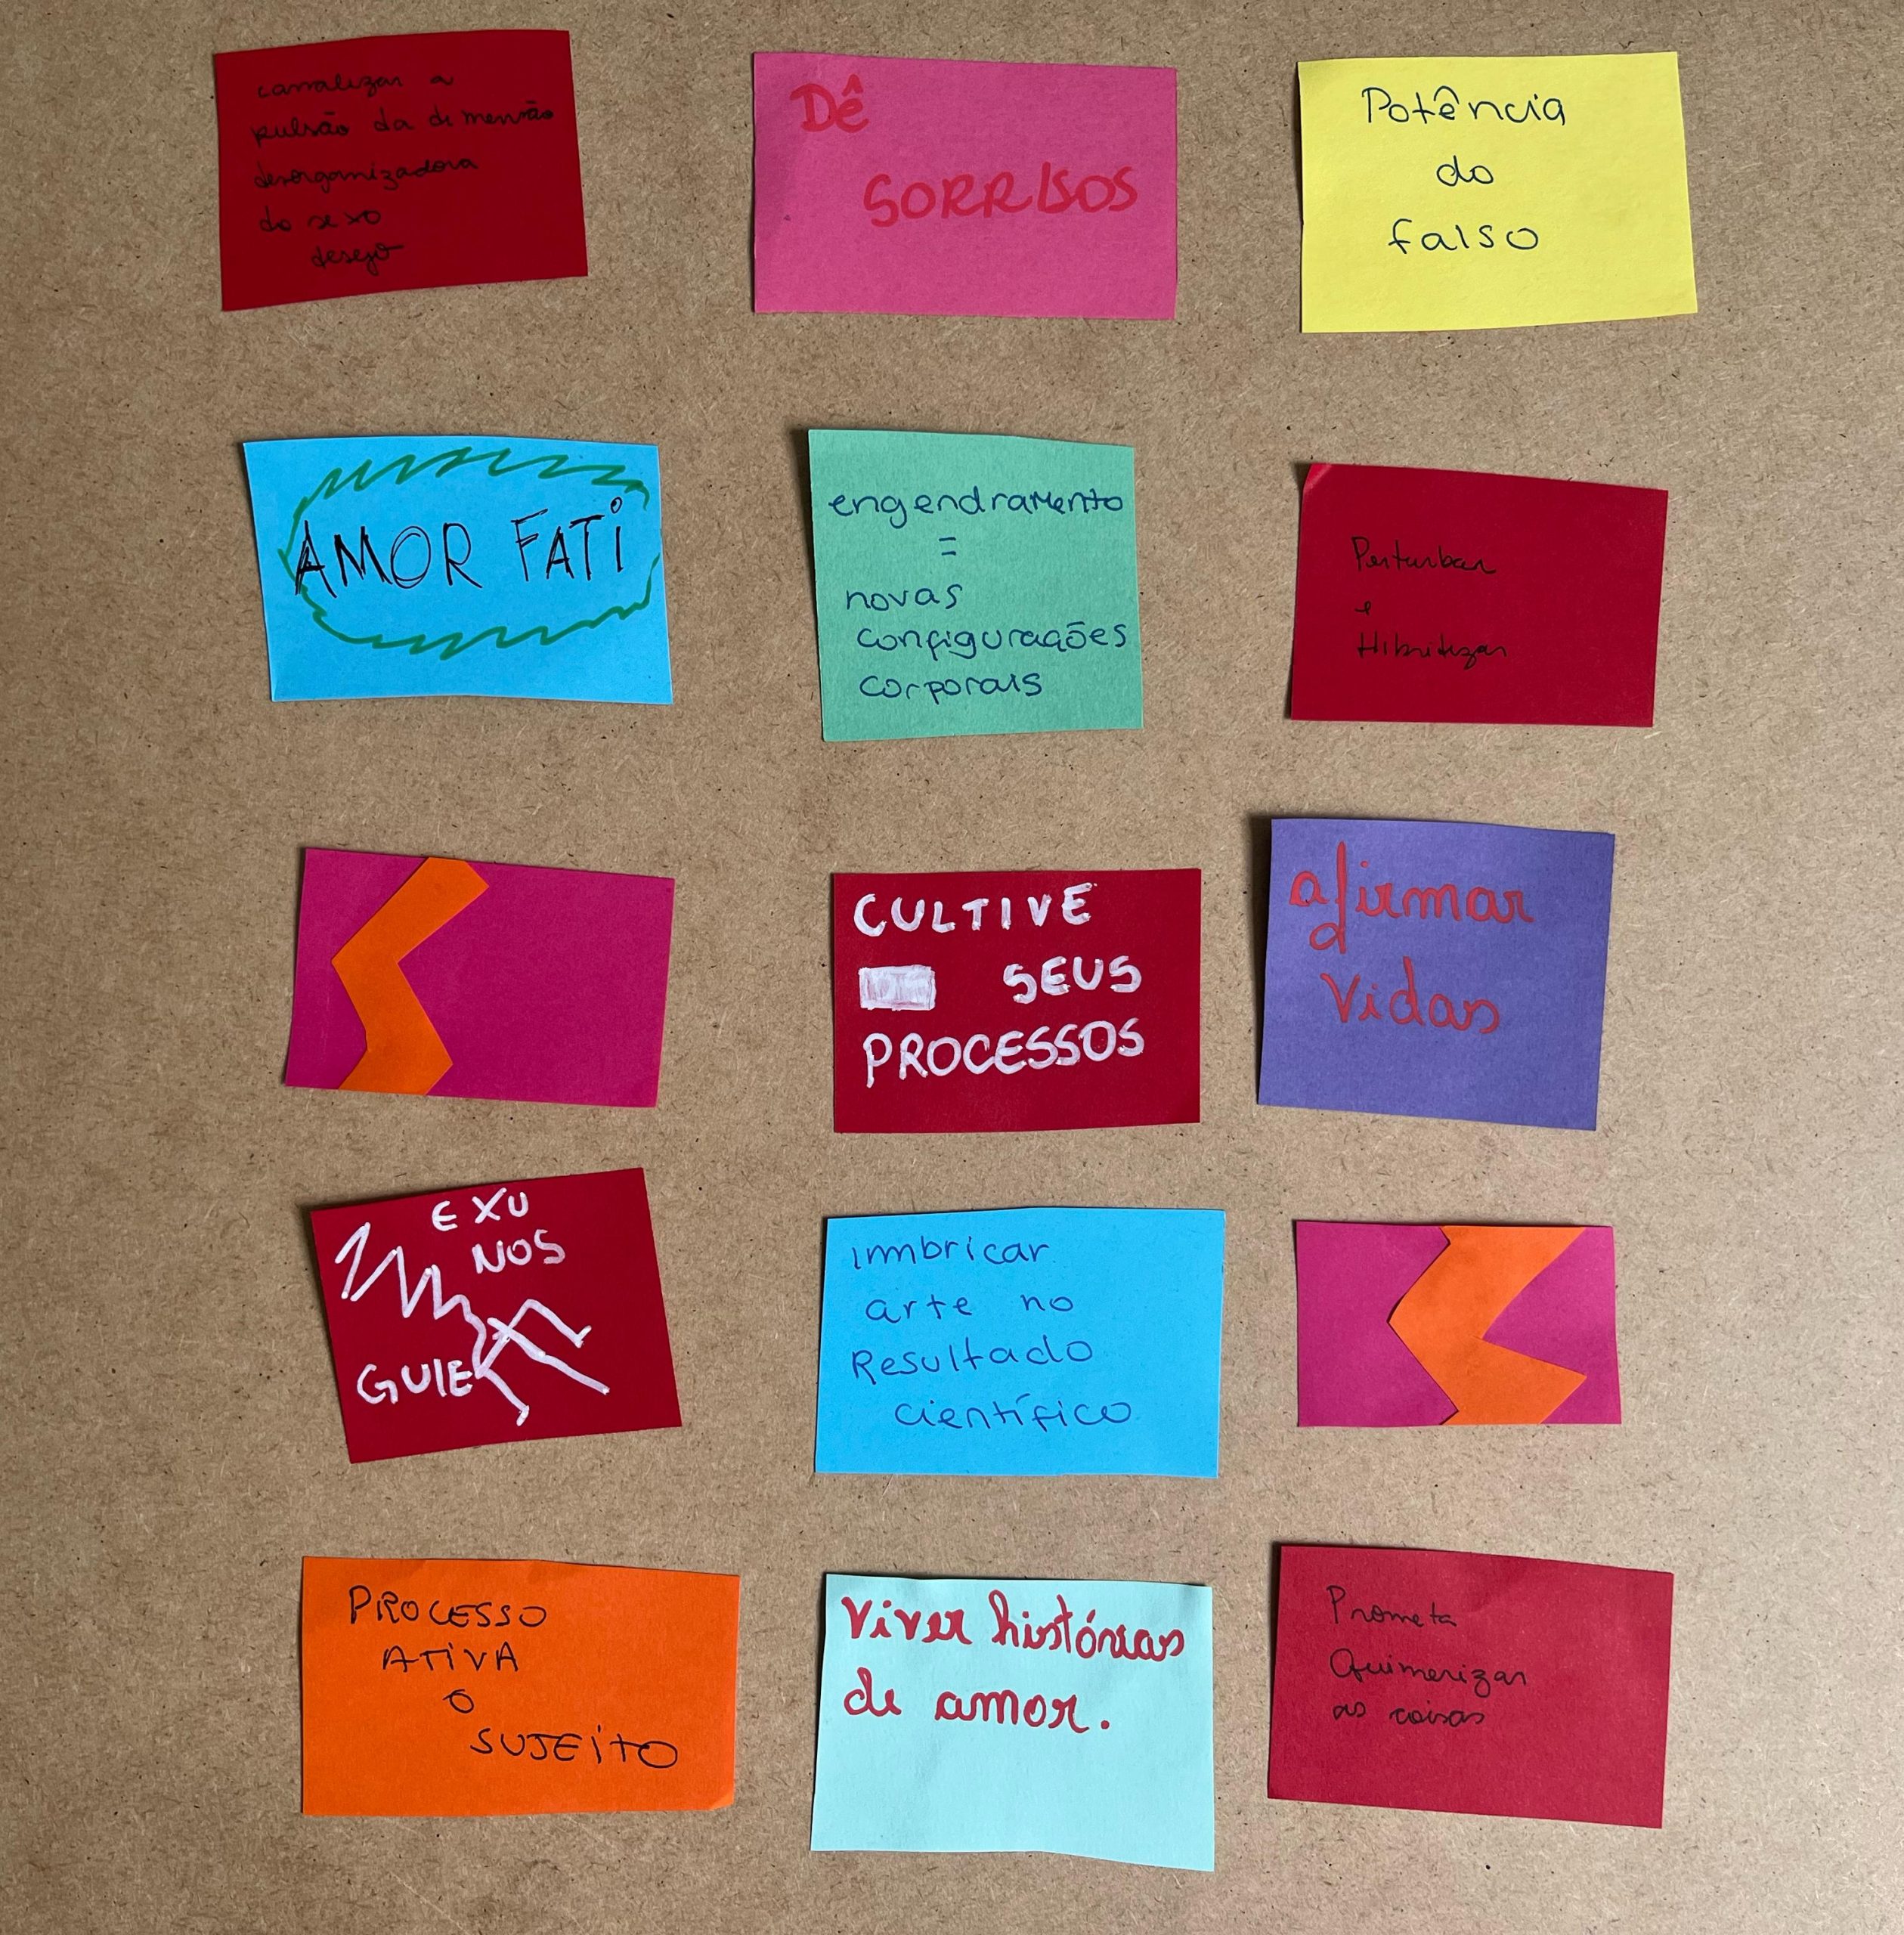 canalizar a
pulsão da dimensão
desorganizadora
do sexo
desejo
Dê
SORRISOS
Potência
do
falso
AMOR FATi
engendramento
=
novas
configurações
corporais
Perturbar
e
Hibridizar
CULTIVE
SEUS
PROCESSOS
afirmar
vidas
EXU
NOS
GUIE
imbricar
arte no
Resultado
científico
PROCESSO
ATiVA
O
SUJEiTO
Viver histórias
de amor.
Prometa
Quimerizar
as coisas